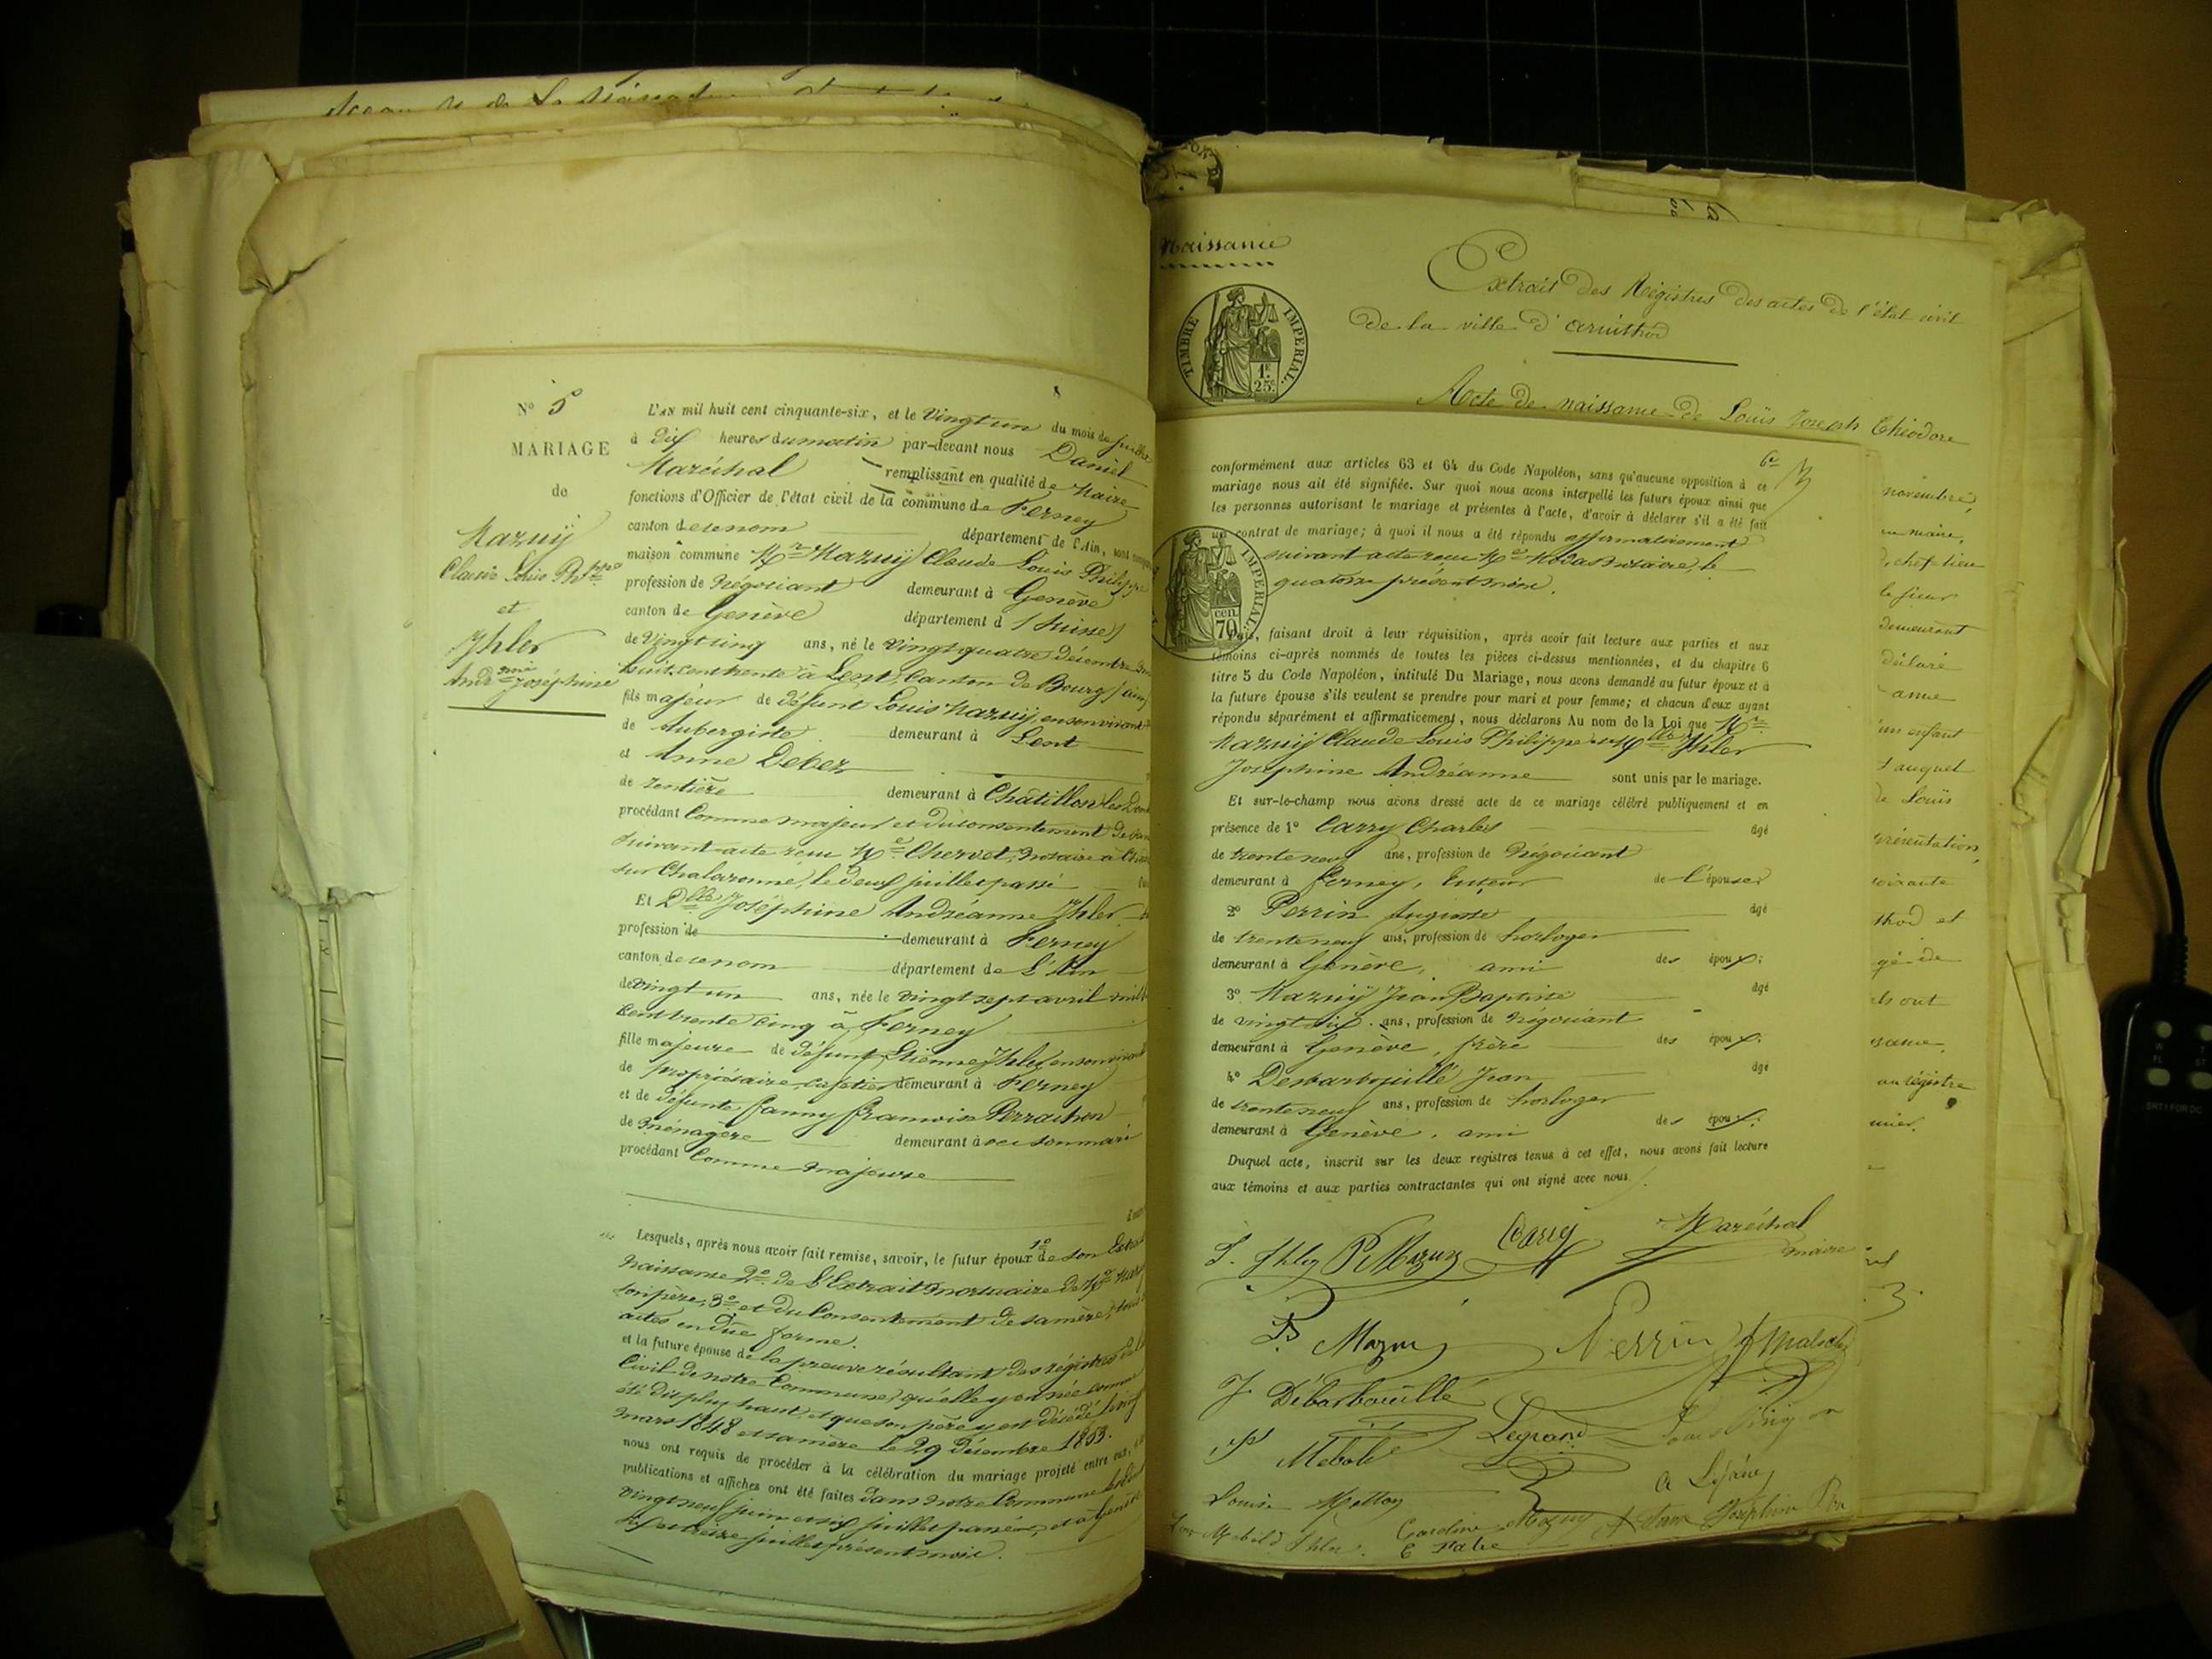 N° 5
MARIAGE
de
Mazuÿ
Claude Louis Ph^ppe
et
Ihler
And^anne Joséphine
L'AN mil huit cent cinquante-six, et le Vingt un du mois de juillet
à dix heures du matin par-devant nous Daniel
Maréchal remplissant en qualité de Maire
fonctions d'Officier de l'état civil de la commune de Ferney
canton de ce nom département de l'Ain, sont
maison commune M^r Mazuÿ Claude Louis Philippe
profession de Négociant demeurant à Genève
canton de Genève département d (Suisse)
de Vingt cinq ans, né le Vingt quatre Décembre
huit cent trente à Lent, Canton de Bourg (ain)
fils majeur de défunt Louis Mazuÿ, en son vivant
de Aubergiste demeurant à Lent
et Anne Debez
de rentière demeurant à Châtillon les
procédant Comme majeur et du consentement de
suivant acte reçu M^e Chervet, Notaire à
sur Chalaronne, le deux juillet passé
Et D^lle Joséphine Andréanne Ihler
profession de demeurant à Ferney
canton de ce nom département de L'Ain
de vingt un ans, née le vingt sept avril
Cent trente cinq à Ferney
fille majeure de défunt Etienne Ihler en son vivant
de propriétaire cafetier demeurant à Ferney
et de défunte fanny françoise Perrachon
de Ménagère demeurant avec son mari
procédant Comme majeure
Lesquels, après nous avoir fait remise, savoir, le futur époux 1° de son
Naissance 2° de l'Extrait mortuaire de M^r
son père, 3° et du Consentement de sa mère,
actes en Dûe forme.
et la future épouse de la preuve résultant des régistres
Civil de notre Commune, qu'elle y est née comme
été dit plus haut, et que son père y est décédé
mars 1848 et sa mère le 29 Décembre 1853.
nous ont requis de procéder à la célébration du mariage projeté entre eux,
publications et affiches ont été faites dans notre Commune
Vingt neuf juin et six juillet passés, et à Genève
six et treize juillet présent mois.
Naissance
TIMBRE IMPERIAL.
1F.
25c.
Extrait des Régistres des actes de l'état civil
de la ville d'arinthod
Acte de naissance de Louis Joseph Théodore
6e
conformément aux articles 63 et 64 du Code Napoléon, sans qu'aucune opposition à ce
mariage nous ait été signifiée. Sur quoi nous avons interpellé les futurs époux ainsi que
les personnes autorisant le mariage et présentes à l'acte, d'avoir à déclarer s'il a été fait
un contrat de mariage; à quoi il nous a été répondu affirmativement
suivant acte reçu M^e Notaire, le
quatorze présent mois.
IMPERIAL.
cen.
70
Puis, faisant droit à leur réquisition, après avoir fait lecture aux parties et aux
témoins ci-après nommés de toutes les pièces ci-dessus mentionnées, et du chapitre 6
titre 5 du Code Napoléon, intitulé Du Mariage, nous avons demandé au futur époux et à
la future épouse s'ils veulent se prendre pour mari et pour femme; et chacun d'eux ayant
répondu séparément et affirmativement, nous déclarons Au nom de la Loi que M^r
Mazuÿ Claude Louis Philippe et M^lle Ihler
Joséphine Andréanne sont unis par le mariage.
Et sur-le-champ nous avons dressé acte de ce mariage célébré publiquement et en
présence de 1° Carry Charles âgé
de trente neuf ans, profession de Négociant
demeurant à Ferney, tuteur de l'épouse
2° Perrin Auguste âgé
de trente neuf ans, profession de horloger
demeurant à Genève, ami des époux;
3° Mazuÿ Jean Baptiste âgé
de vingt six ans, profession de Négociant
demeurant à Genève, frère des époux;
4° Desbarbouillé Jean âgé
de trente neuf ans, profession de horloger
demeurant à Genève, ami des époux;
Duquel acte, inscrit sur les deux registres tenus à cet effet, nous avons fait lecture
aux témoins et aux parties contractantes qui ont signé avec nous.
J. Ihler P. Mazuy Carry Maréchal
maire
B. Mazuy Perrin
J Débarbouillé
Legrand Louis
Louise
Caroline Mazuy Joséphine
novembre,
en mairie,
chef lieu
le sieur
demeurant
déclaré
anne
un enfant
auquel
de Louis
présentation,
soixante
thod et
gé de
ils ont
au régistre